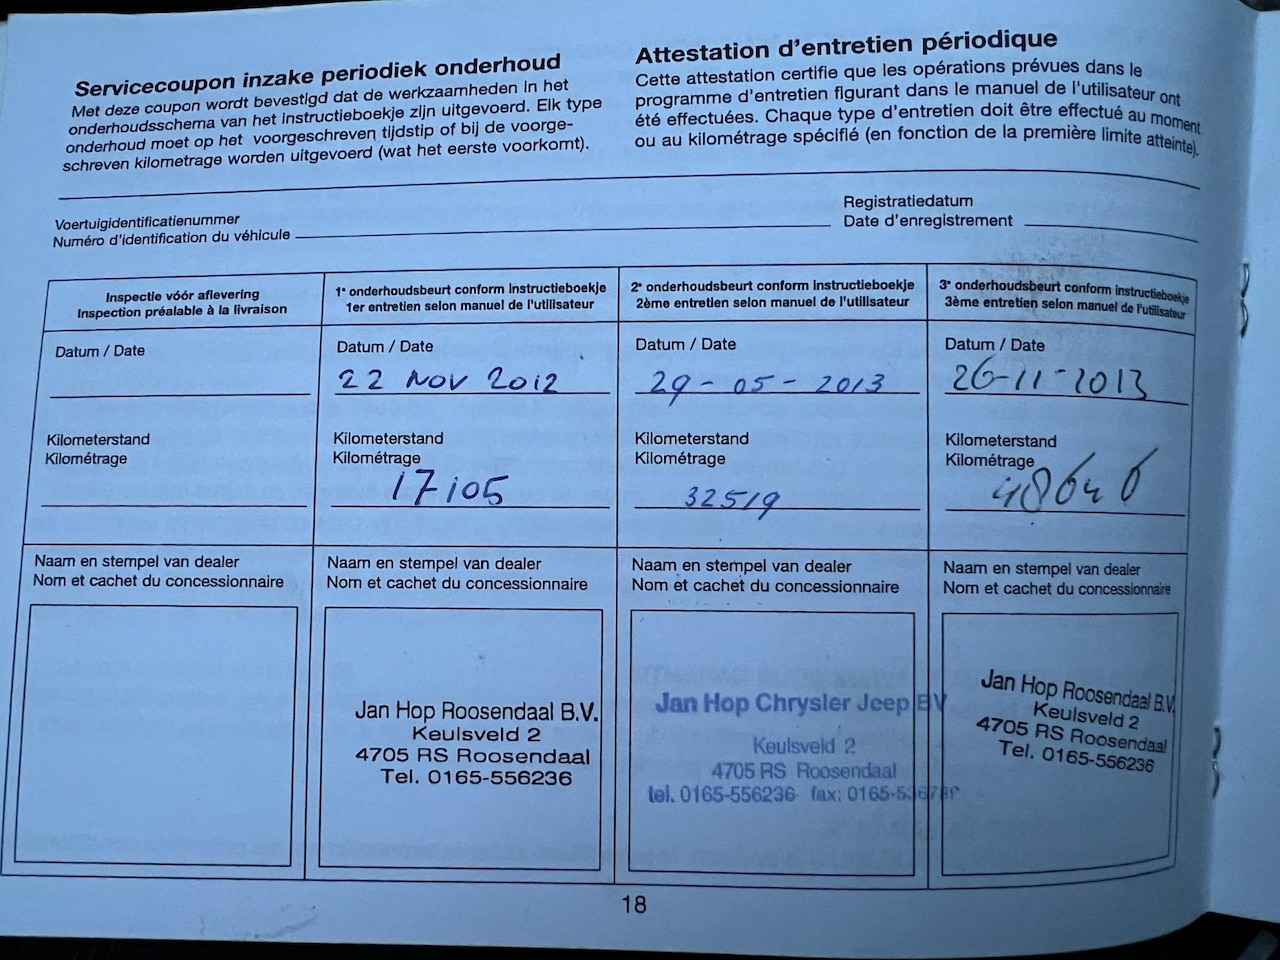 Servicecoupon inzake periodiek onderhoud
Met deze coupon wordt bevestigd dat de werkzaamheden in het
onderhoudsschema van het instructieboekje zijn uitgevoerd. Elk type
onderhoud moet op het voorgeschreven tijdstip of bij de voorge-
schreven kilometrage worden uitgevoerd (wat het eerste voorkomt).
Attestation d'entretien périodique
Cette attestation certifie que les opérations prévues dans le
programme d'entretien figurant dans le manuel de l'utilisateur ont
été effectuées. Chaque type d'entretien doit être effectué au moment
ou au kilométrage spécifié (en fonction de la première limite atteinte).
Voertuigidentificatienummer
Numéro d'identification du véhicule
Registratiedatum
Date d'enregistrement
Inspectie vóór aflevering
Inspection préalable à la livraison
Datum / Date
Kilometerstand
Kilométrage
Naam en stempel van dealer
Nom et cachet du concessionnaire
1e onderhoudsbeurt conform instructieboekje
1er entretien selon manuel de l'utilisateur
Datum / Date
22 NOV 2012
Kilometerstand
Kilométrage
17105
Naam en stempel van dealer
Nom et cachet du concessionnaire
Jan Hop Roosendaal B.V.
Keulsveld 2
4705 RS Roosendaal
Tel. 0165-556236
2e onderhoudsbeurt conform instructieboekje
2ème entretien selon manuel de l'utilisateur
Datum / Date
29-05-2013
Kilometerstand
Kilométrage
32519
Naam en stempel van dealer
Nom et cachet du concessionnaire
Jan Hop Chrysler Jeep BV
Keulsveld 2
4705 RS Roosendaal
tel. 0165-556236 fax:
3e onderhoudsbeurt conform instructieboekje
3ème entretien selon manuel de l'utilisateur
Datum / Date
26-11-2013
Kilometerstand
Kilométrage
48646
Naam en stempel van dealer
Nom et cachet du concessionnaire
Jan Hop Roosendaal B.V.
Keulsveld 2
4705 RS Roosendaal
Tel. 0165-556236
18